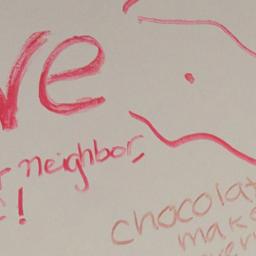 ve
r neighbor
!
chocolat
mak